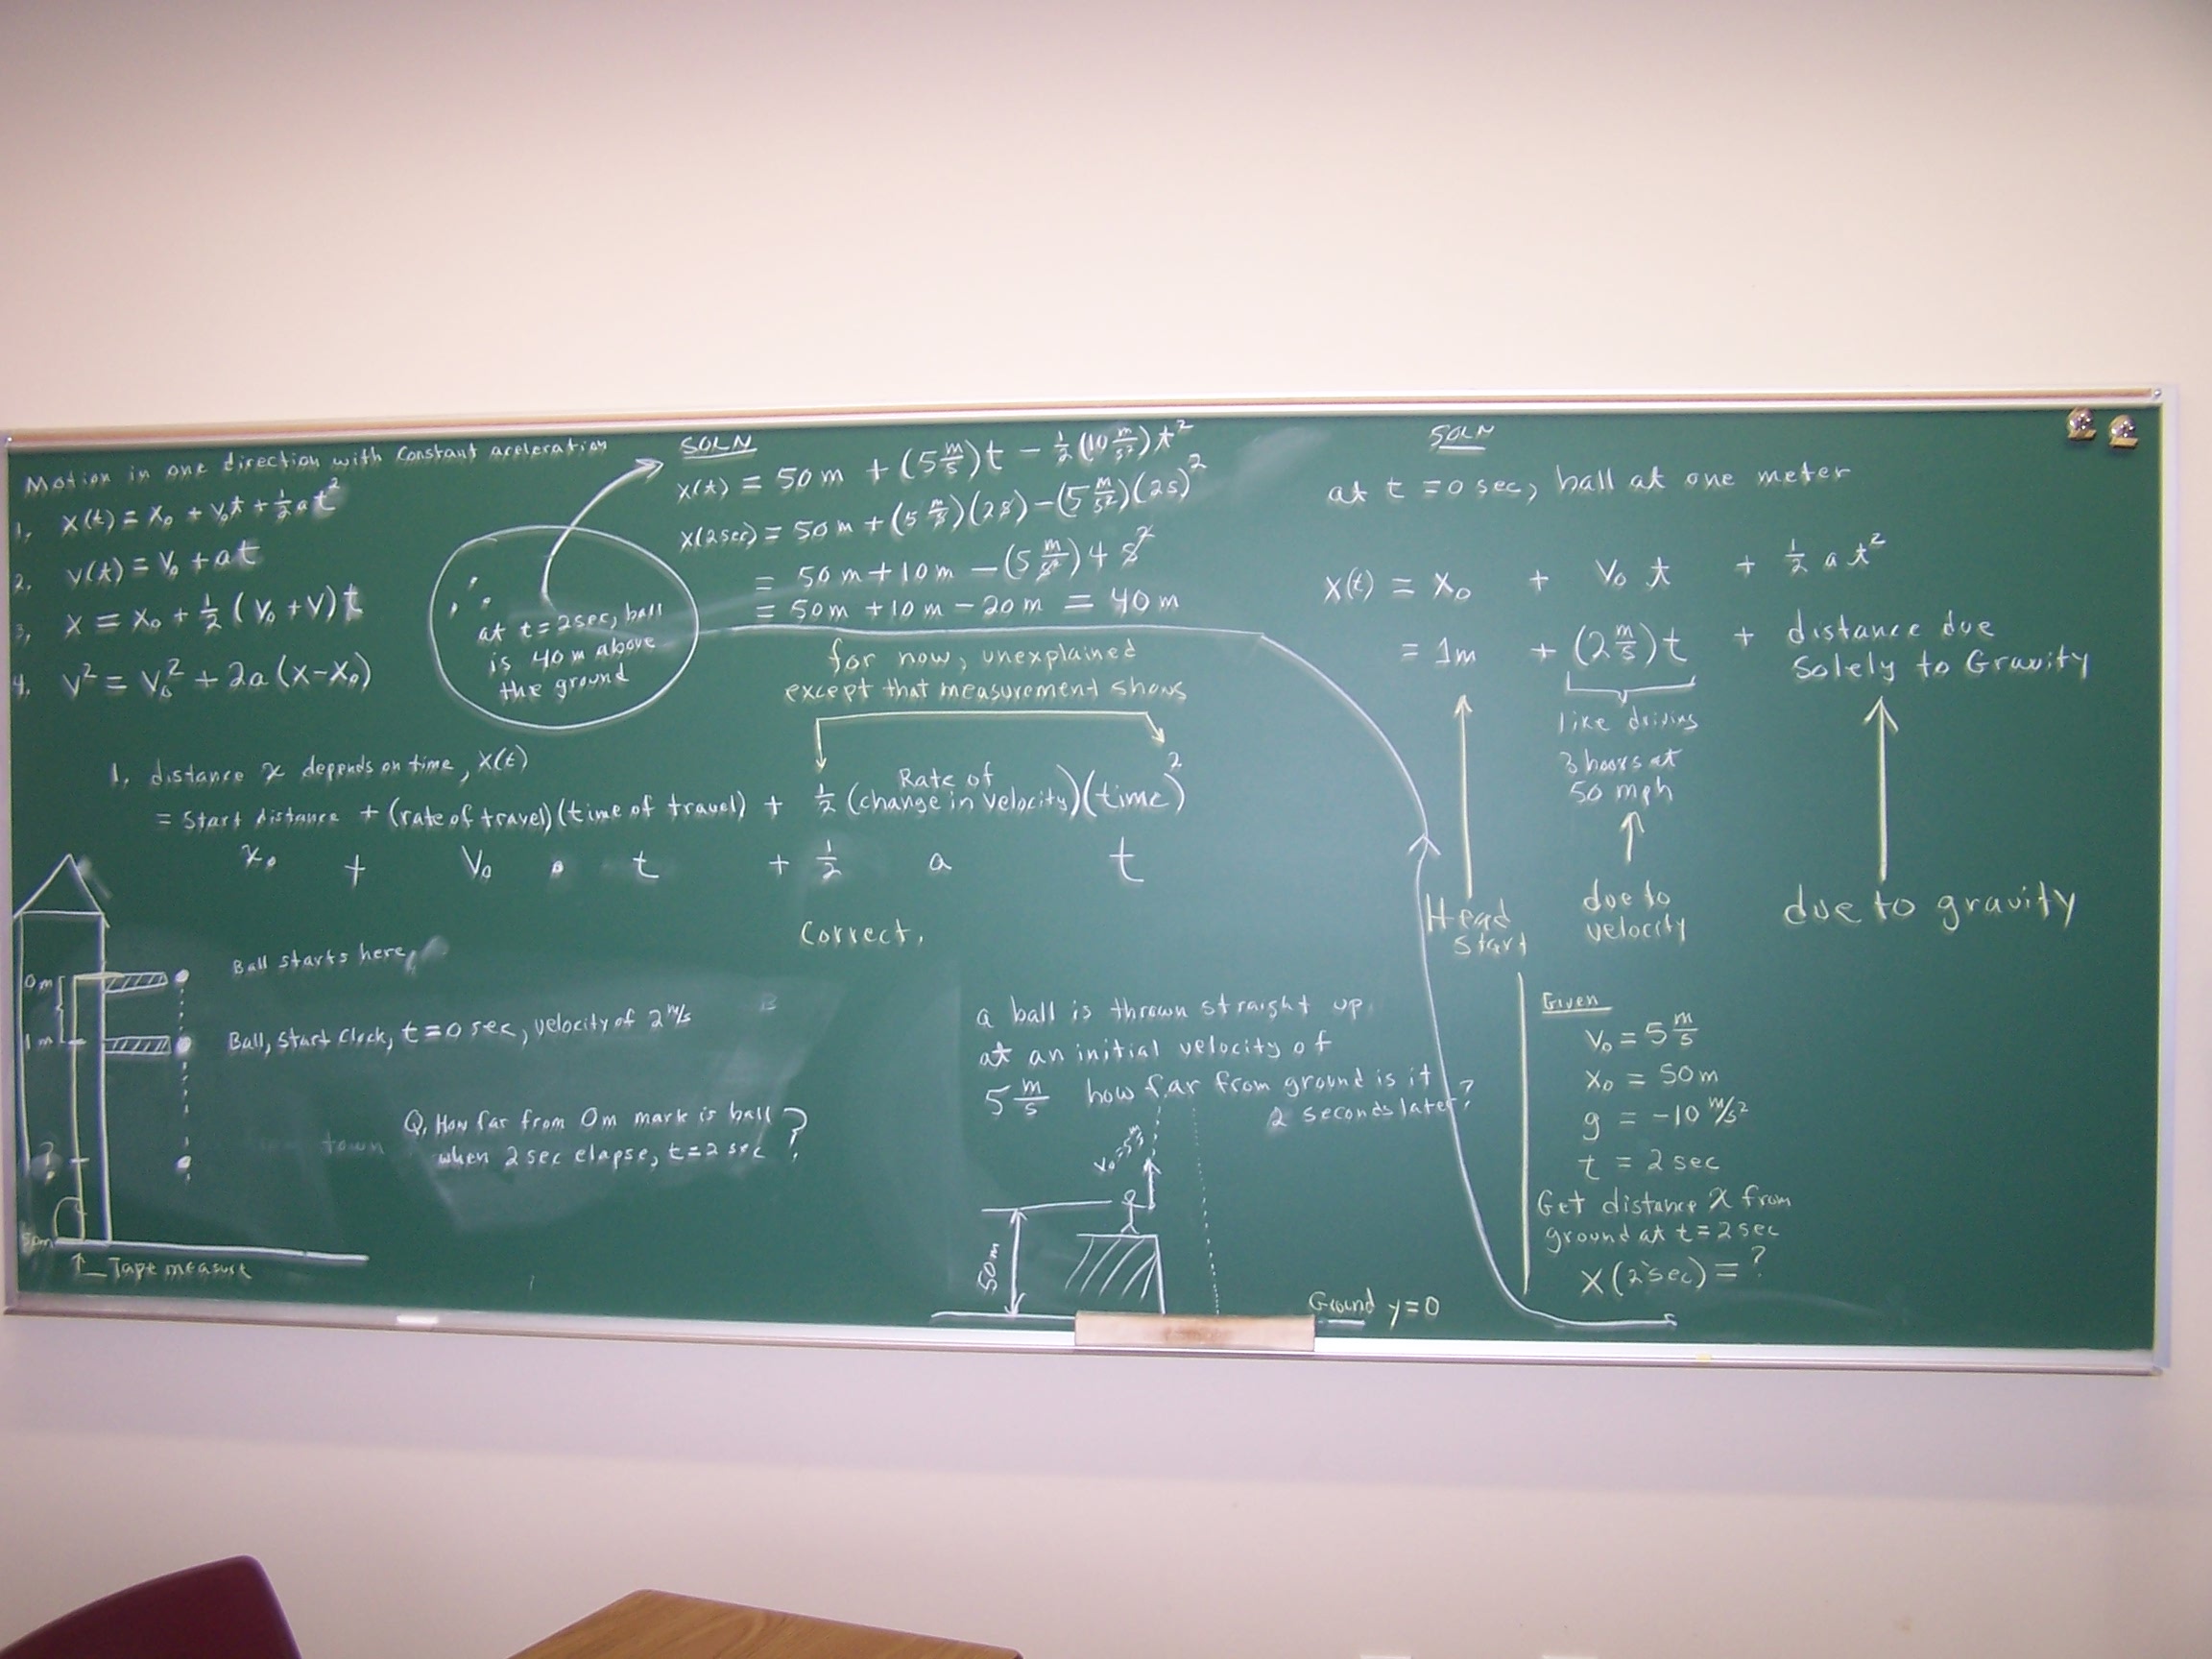 Motion in one direction with Constant aceleration
1. X(t) = X₀ + V₀t + ½at²
2. V(t) = V₀ + at
3. X = X₀ + ½(V₀ + V)t
4. V² = V₀² + 2a(X-X₀)
∴ at t = 2sec, ball
is 40 m above
the ground
SOLN
X(t) = 50 m + (5 m/s)t - ½(10 m/s²)t²
X(2sec) = 50 m + (5 m/s)(2s) - (5 m/s²)(2s)²
= 50 m + 10 m - (5 m/s²)4 s²
= 50m + 10 m - 20 m = 40 m
for now, unexplained
except that measurement shows
1. distance x depends on time, X(t)
= Start distance + (rate of travel)(time of travel) + ½ (Rate of change in velocity)(time)²
x₀ + V₀ • t + ½ a t
Correct.
Ball starts here,
0m
1m
Ball, start clock, t = 0 sec, velocity of 2 m/s
Q. How far from 0m mark is ball
when 2 sec elapse, t = 2 sec ?
town
?
Tape measure
a ball is thrown straight up
at an initial velocity of
5 m/s how far from ground is it
2 seconds later?
V₀ = 5 m/s
50m
Ground y = 0
SOLN
at t = 0 sec, ball at one meter
X(t) = X₀ + V₀ t + ½ a t²
= 1m + (2 m/s)t + distance due
Solely to Gravity
like driving
3 hours at
50 mph
Head
start
due to
velocity
due to gravity
Given
V₀ = 5 m/s
X₀ = 50m
g = -10 m/s²
t = 2 sec
Get distance x from
ground at t = 2 sec
X(2 sec) = ?